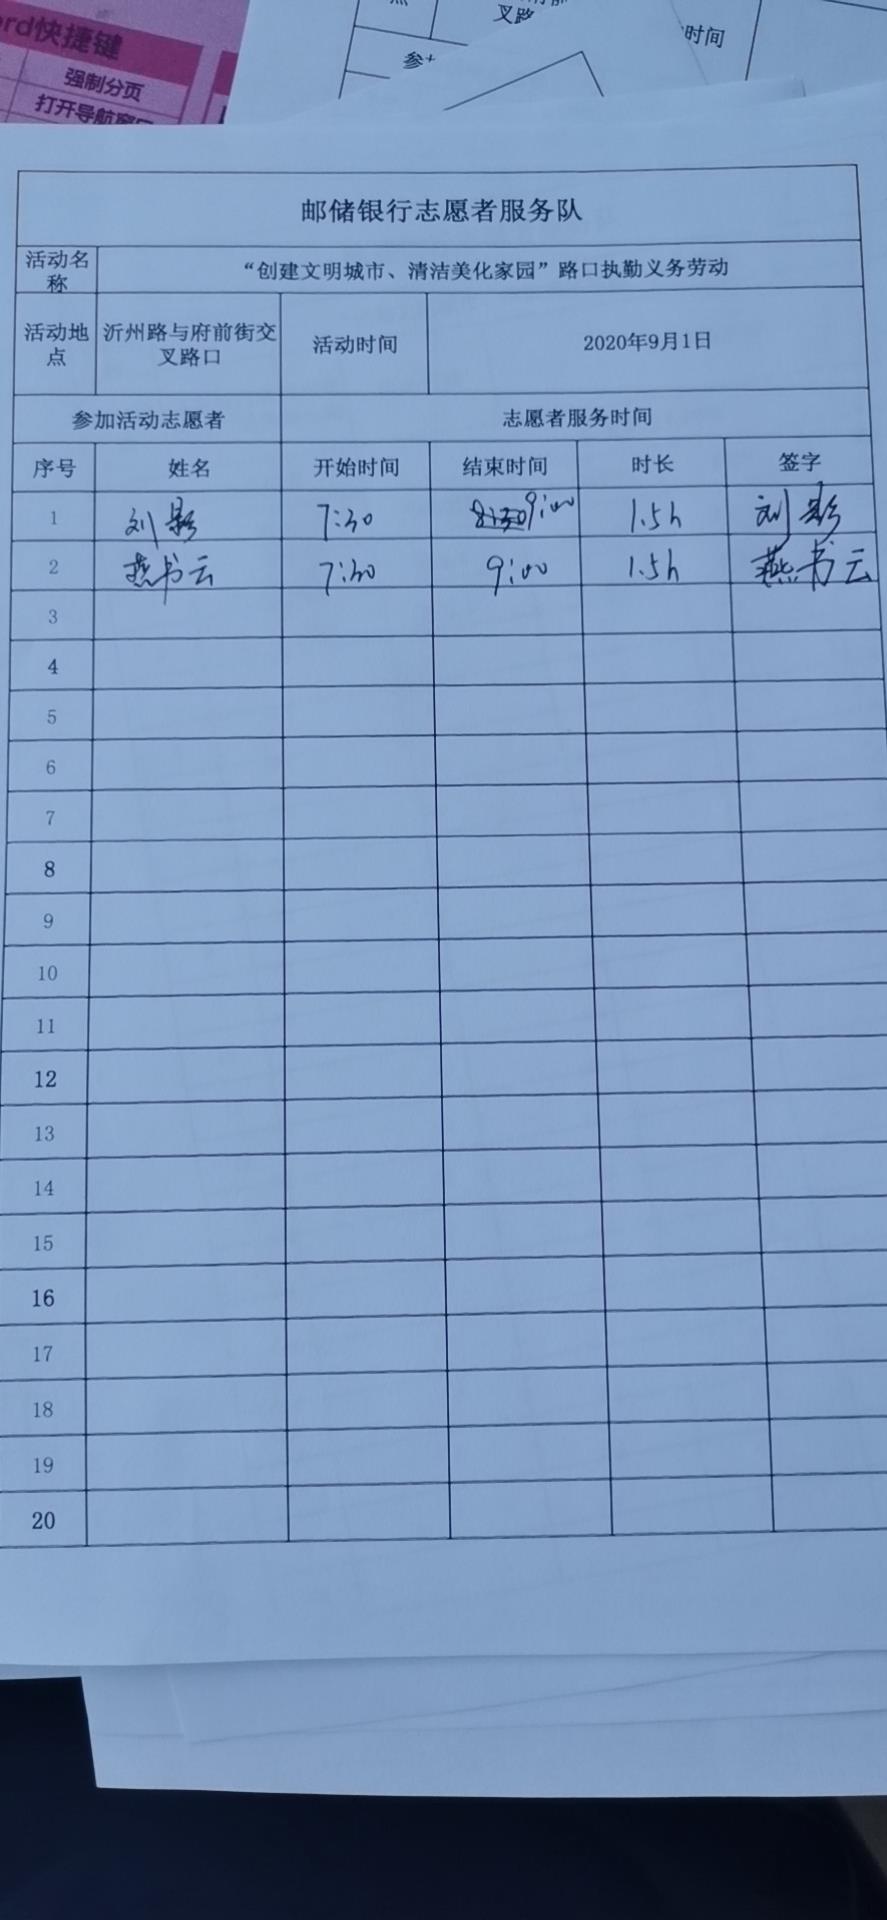 rd快捷键
强制分页
打开导航窗口
叉路
时间
邮储银行志愿者服务队
活动名称 “创建文明城市、清洁美化家园”路口执勤义务劳动
活动地点 沂州路与府前街交叉路口 活动时间 2020年9月1日
参加活动志愿者 志愿者服务时间
序号 姓名 开始时间 结束时间 时长 签字
1 刘影 7:30 9:00 1.5h 刘影
2 燕书云 7:30 9:00 1.5h 燕书云
3
4
5
6
7
8
9
10
11
12
13
14
15
16
17
18
19
20